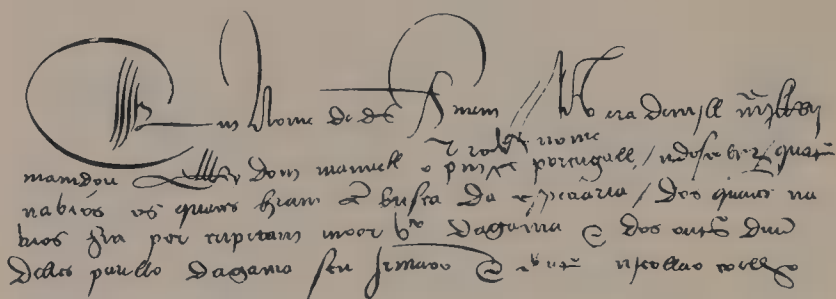 Em Nome de ds Amem // Na era de mill iiijLRvij
nome
mamdou el Rey dom manuell o prº portugall / a descobrir / quatro
nabios os quaees hiam busca da especiaria / dos quaees na
bios hia por capitam moor Vco dagama e dos outos duū
delles paullo dagama seu jrmaoo e nicollao coelho